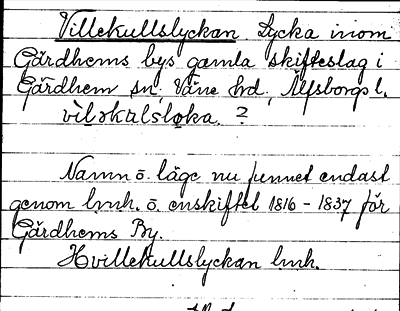 Villekullslyckan Lycka inom
Gärdhems bys gamla skifteslag i
Gärdhem sn, Väne hrd, Älfsborgs l.
vìlǝkulsløka. ?
Namn o. läge nu funnet endast
genom lmh. o. enskiftet 1816 - 1837 för
Gärdhems By.
Hvillekullslyckan lmh.